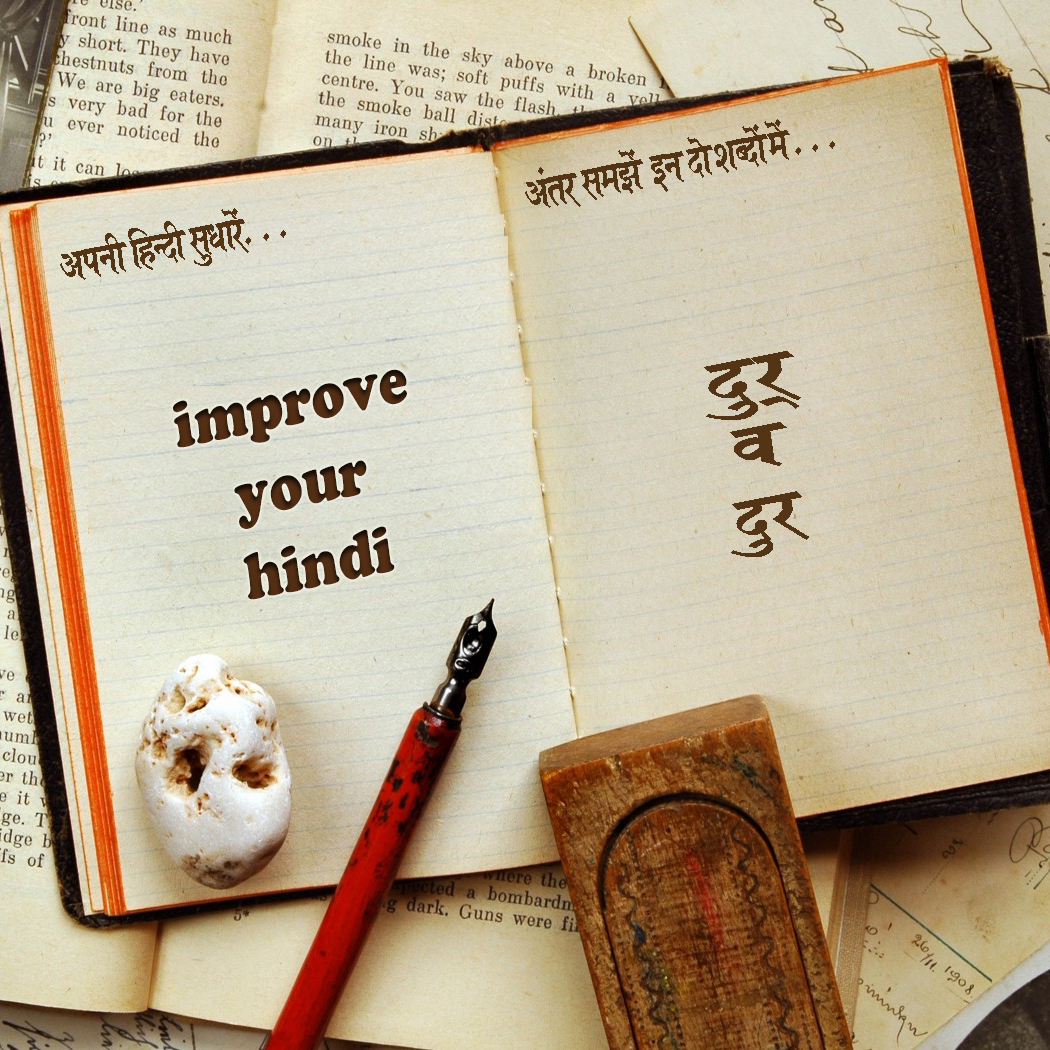 re else.'
front line as much
y short. They have
chestnuts from the
We are big eaters.
s very bad for the
u ever noticed the
?'
it can
smoke in the sky above a broken
the line was; soft puffs with a
centre. You saw the flash,
the smoke ball
many iron
on
अपनी हिन्दी सुधारें. . .
improve
your
hindi
अंतर समझें इन दो शब्दों में . . .
दुर्
व
दुर
where the
a
dark. Guns were
5*
26/11. 1908.